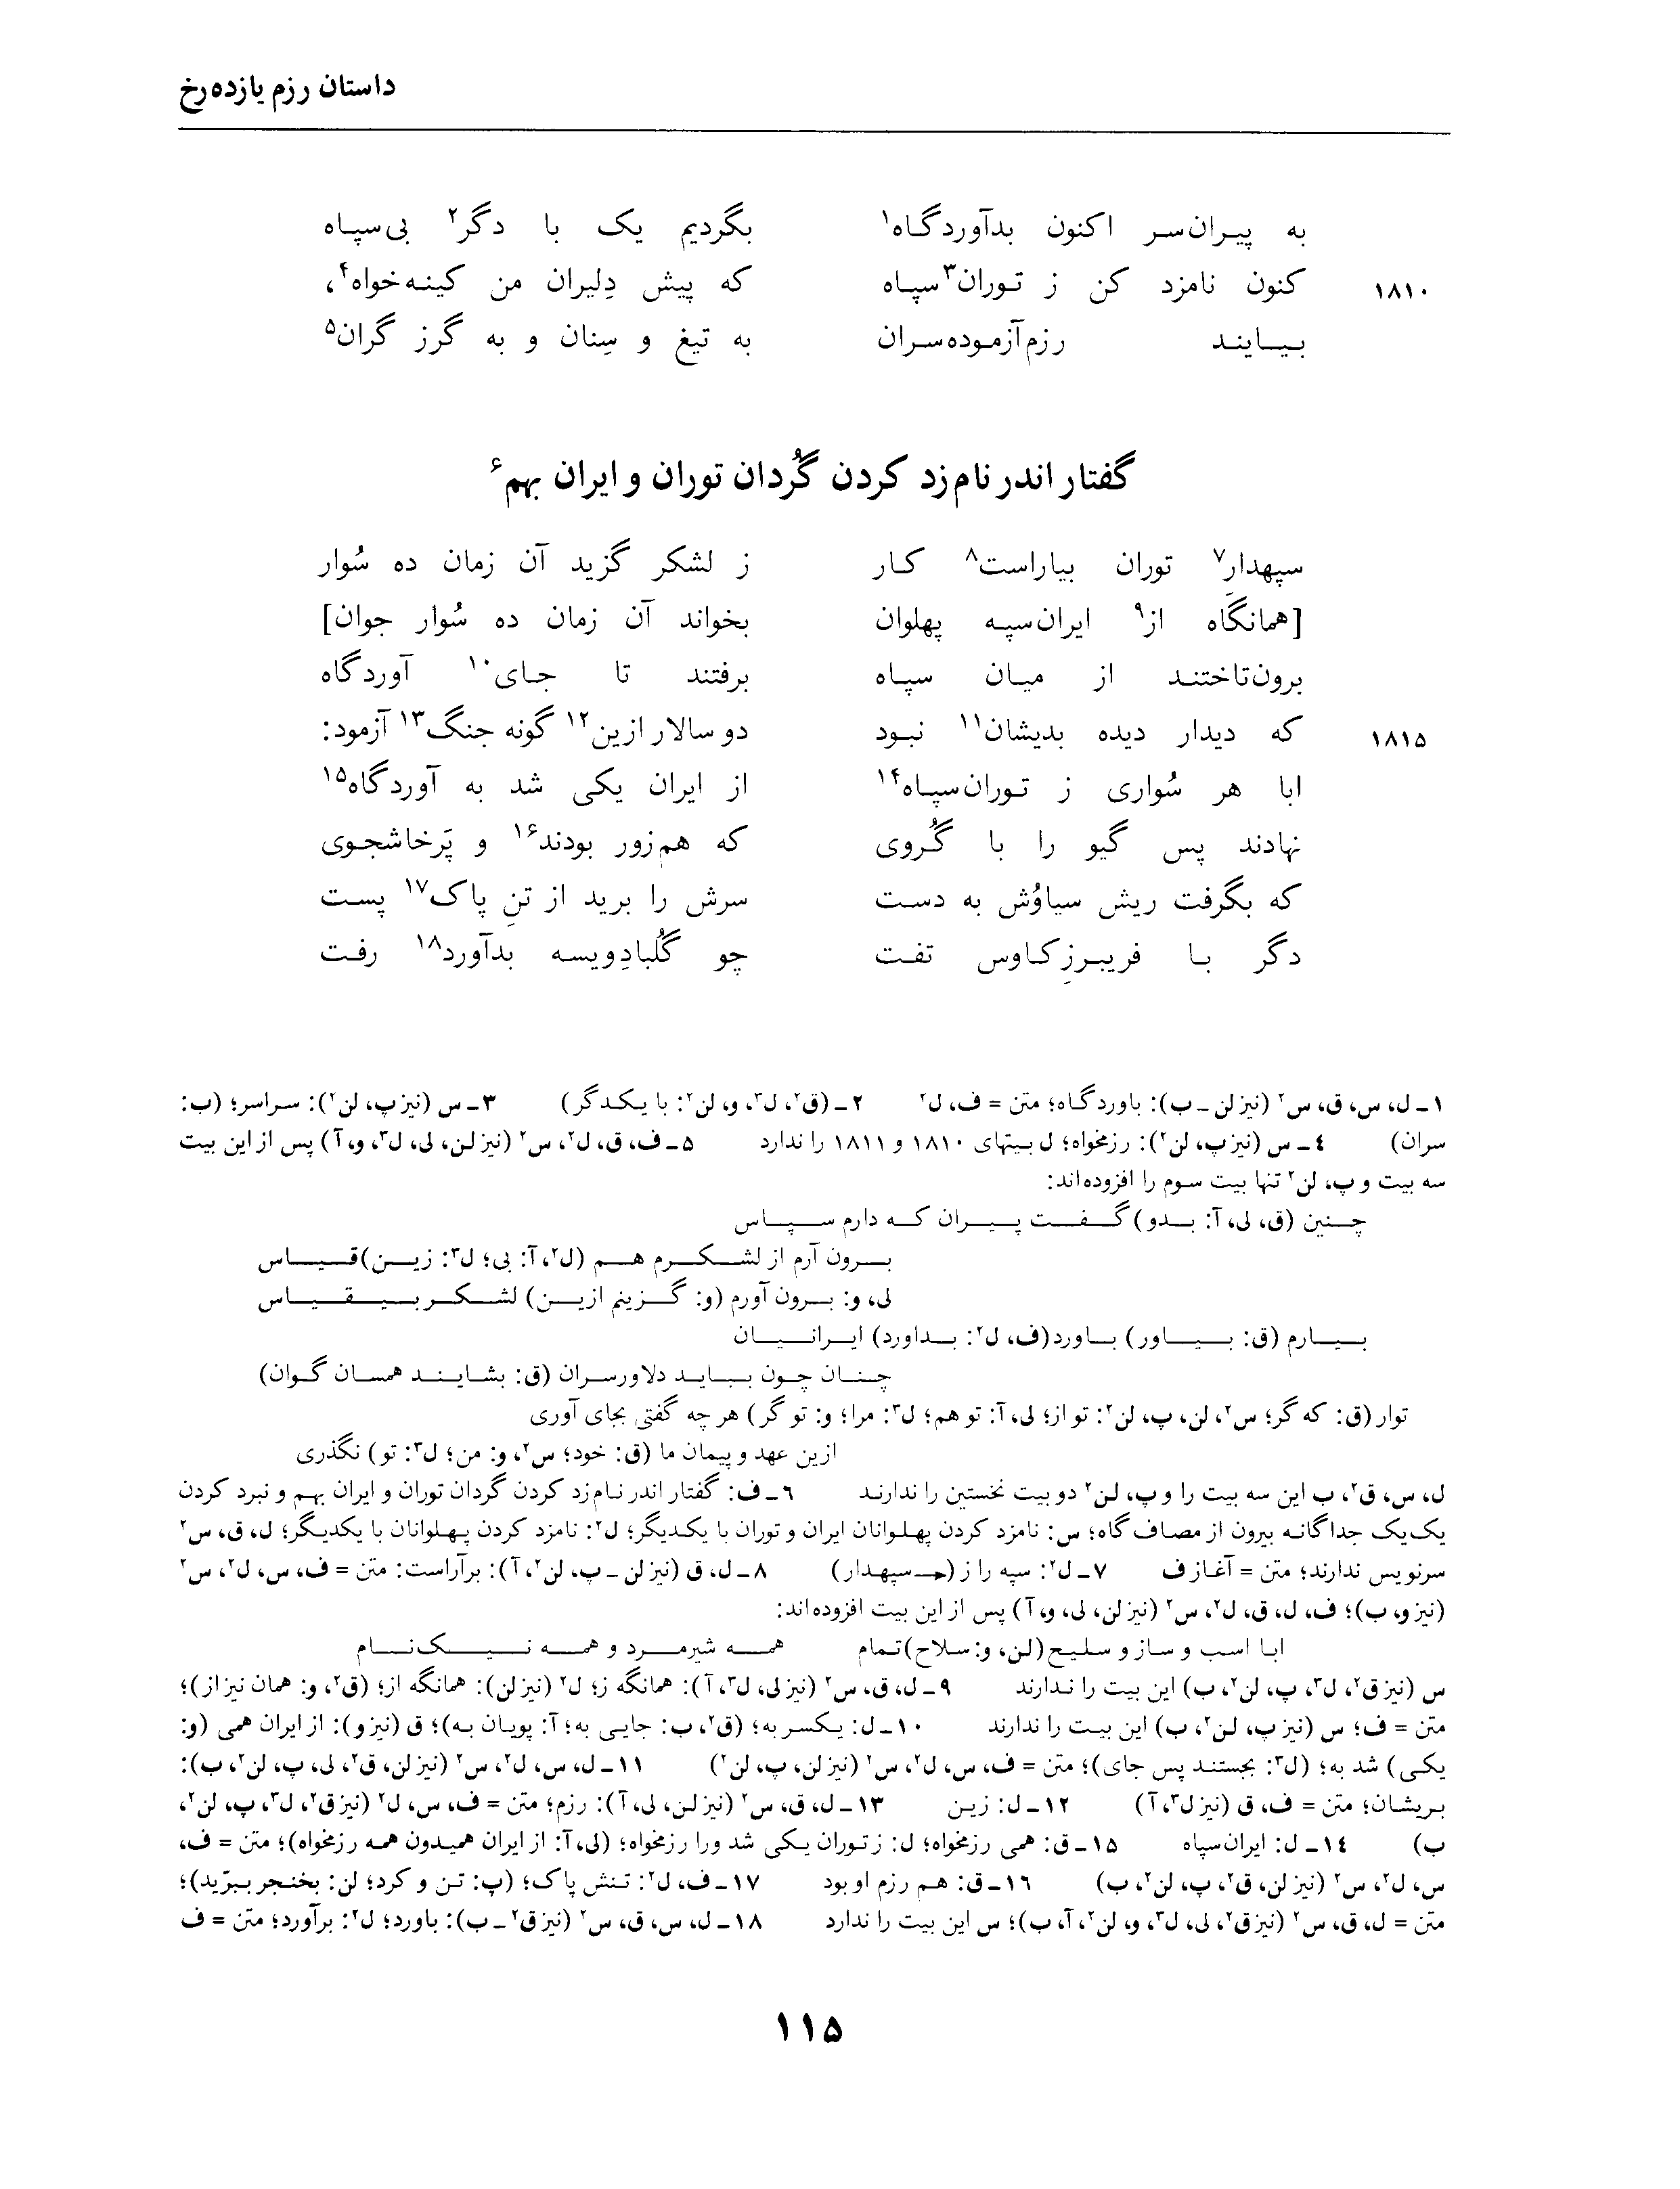 داستان رزم یازده‌رخ
به پیران‌سر اکنون بدآوردگاه۱ بگردیم یک با دگر۲ بی‌سپاه
۱۸۱۰ کنون نامزد کن ز توران۳سپاه که پیش دِلیران من کینه‌خواه۴،
بیایند رزم‌آزموده‌سران به تیغ و سِنان و به گرز گران۵
گفتار اندر نام‌زد کردن گُردان توران و ایران بهم۶
سپهدار۷ توران بیاراست۸ کار ز لشکر گزید آن زمان ده سُوار
[همانگَاه از۹ ایران‌سپه پهلوان بخواند آن زمان ده سُوار جوان]
برون‌تاختند از میان سپاه برفتند تا جای۱۰ آوردگاه
۱۸۱۵ که دیدار دیده بدیشان۱۱ نبود دو سالار ازین۱۲ گونه جنگ۱۳ آزمود:
ابا هر سُواری ز توران‌سپاه۱۴ از ایران یکی شد به آوردگاه۱۵
نهادند پس گیو را با گُروی که هم‌زور بودند۱۶ و پَرخاشجوی
که بگرفت ریش سیاوُش به دست سرش را برید از تنِ پاک۱۷ پست
دگر با فریبرزِ کاوس تفت چو گُلبادِویسه بدآورد۱۸ رفت
۱ـ ل، س، ق، س۲ (نیز لن ـ ب): باوردگاه؛ متن = ف، ل۲ ۲ـ (ق۲، ل۳، و، لن۲: با یکدگر) ۳ـ س (نیز پ، لن۲): سراسر؛ (ب:
سران) ۴ـ س (نیز پ، لن۲): رزمخواه؛ ل بیتهای ۱۸۱۰ و ۱۸۱۱ را ندارد ۵ـ ف، ق، ل۲، س۲ (نیز لن، لی، ل۳، و، آ) پس از این بیت
سه بیت و پ، لن۲ تنها بیت سوم را افزوده‌اند:
چنین (ق، لی، آ: بدو) گفت پیران که دارم سپاس
برون آرم از لشکرم هم (ل۲، آ: بی؛ ل۳: زین) قیاس
لی، و: برون آورم (و: گزینم ازین) لشکر بیقیاس
بیارم (ق: بیاور) باورد (ف، ل۲: بداورد) ایرانیان
چنان چون بباید دلاورسران (ق: بشایند همسان گوان)
توار (ق: که گر؛ س۲، لن، پ، لن۲: تو از؛ لی، آ: تو هم؛ ل۳: مرا؛ و: تو گر) هر چه گفتی بجای آوری
ازین عهد و پیمان ما (ق: خود؛ س۲، و: من؛ ل۳: تو) نگذری
ل، س، ق۲، ب این سه بیت را و پ، لن۲ دو بیت نخستین را ندارند ۶ـ ف: گفتار اندر نام‌زد کردن گردان توران و ایران بهم و نبرد کردن
یک‌یک جداگانه بیرون از مصاف گاه؛ س: نامزد کردن پهلوانان ایران و توران با یکدیگر؛ ل۲: نامزد کردن پهلوانان با یکدیگر؛ ل، ق، س۲
سرنویس ندارند؛ متن = آغاز ف ۷ـ ل۲: سپه را ز (← سپهدار) ۸ـ ل، ق (نیز لن ـ پ، لن۲، آ): برآراست: متن = ف، س، ل۲، س۲
(نیز و، ب)؛ ف، ل، ق، ل۲، س۲ (نیز لن، لی، و، آ) پس از این بیت افزوده‌اند:
ابا اسب و ساز و سلیح (لن، و: سلاح) تمام همه شیرمرد و همه نیک‌نام
س (نیز ق۲، ل۳، پ، لن۲، ب) این بیت را ندارند ۹ـ ل، ق، س۲ (نیز لی، ل۳، آ): همانگه ز؛ ل۲ (نیز لن): همانگه از؛ (ق۲، و: همان نیز از)؛
متن = ف؛ س (نیز پ، لن۲، ب) این بیت را ندارند ۱۰ـ ل: یکسر به؛ (ق۲، ب: جایی به؛ آ: پویان به)؛ ق (نیز و): از ایران همی (و:
یکی) شد به؛ (ل۳: بجستند پس جای)؛ متن = ف، س، ل۲، س۲ (نیز لن، پ، لن۲) ۱۱ـ ل، س، ل۲، س۲ (نیز لن، ق۲، لی، پ، لن۲، ب):
بریشان؛ متن = ف، ق (نیز ل۳، آ) ۱۲ـ ل: زین ۱۳ـ ل، ق، س۲ (نیز لن، لی، آ): رزم؛ متن = ف، س، ل۲ (نیز ق۲، ل۳، پ، لن۲،
ب) ۱۴ـ ل: ایران‌سپاه ۱۵ـ ق: همی رزمخواه؛ ل: ز توران یکی شد ورا رزمخواه؛ (لی، آ: از ایران همیدون همه رزمخواه)؛ متن = ف،
س، ل۲، س۲ (نیز لن، ق۲، پ، لن۲، ب) ۱۶ـ ق: هم رزم او بود ۱۷ـ ف، ل۲: تنش پاک؛ (پ: تن و کرد؛ لن: بخنجر ببرّید)؛
متن = ل، ق، س۲ (نیز ق۲، لی، ل۳، و، لن۲، آ، ب)؛ س این بیت را ندارد ۱۸ـ ل، س، ق، س۲ (نیز ق۲ ـ ب): باورد؛ ل۲: برآورد؛ متن = ف
۱۱۵